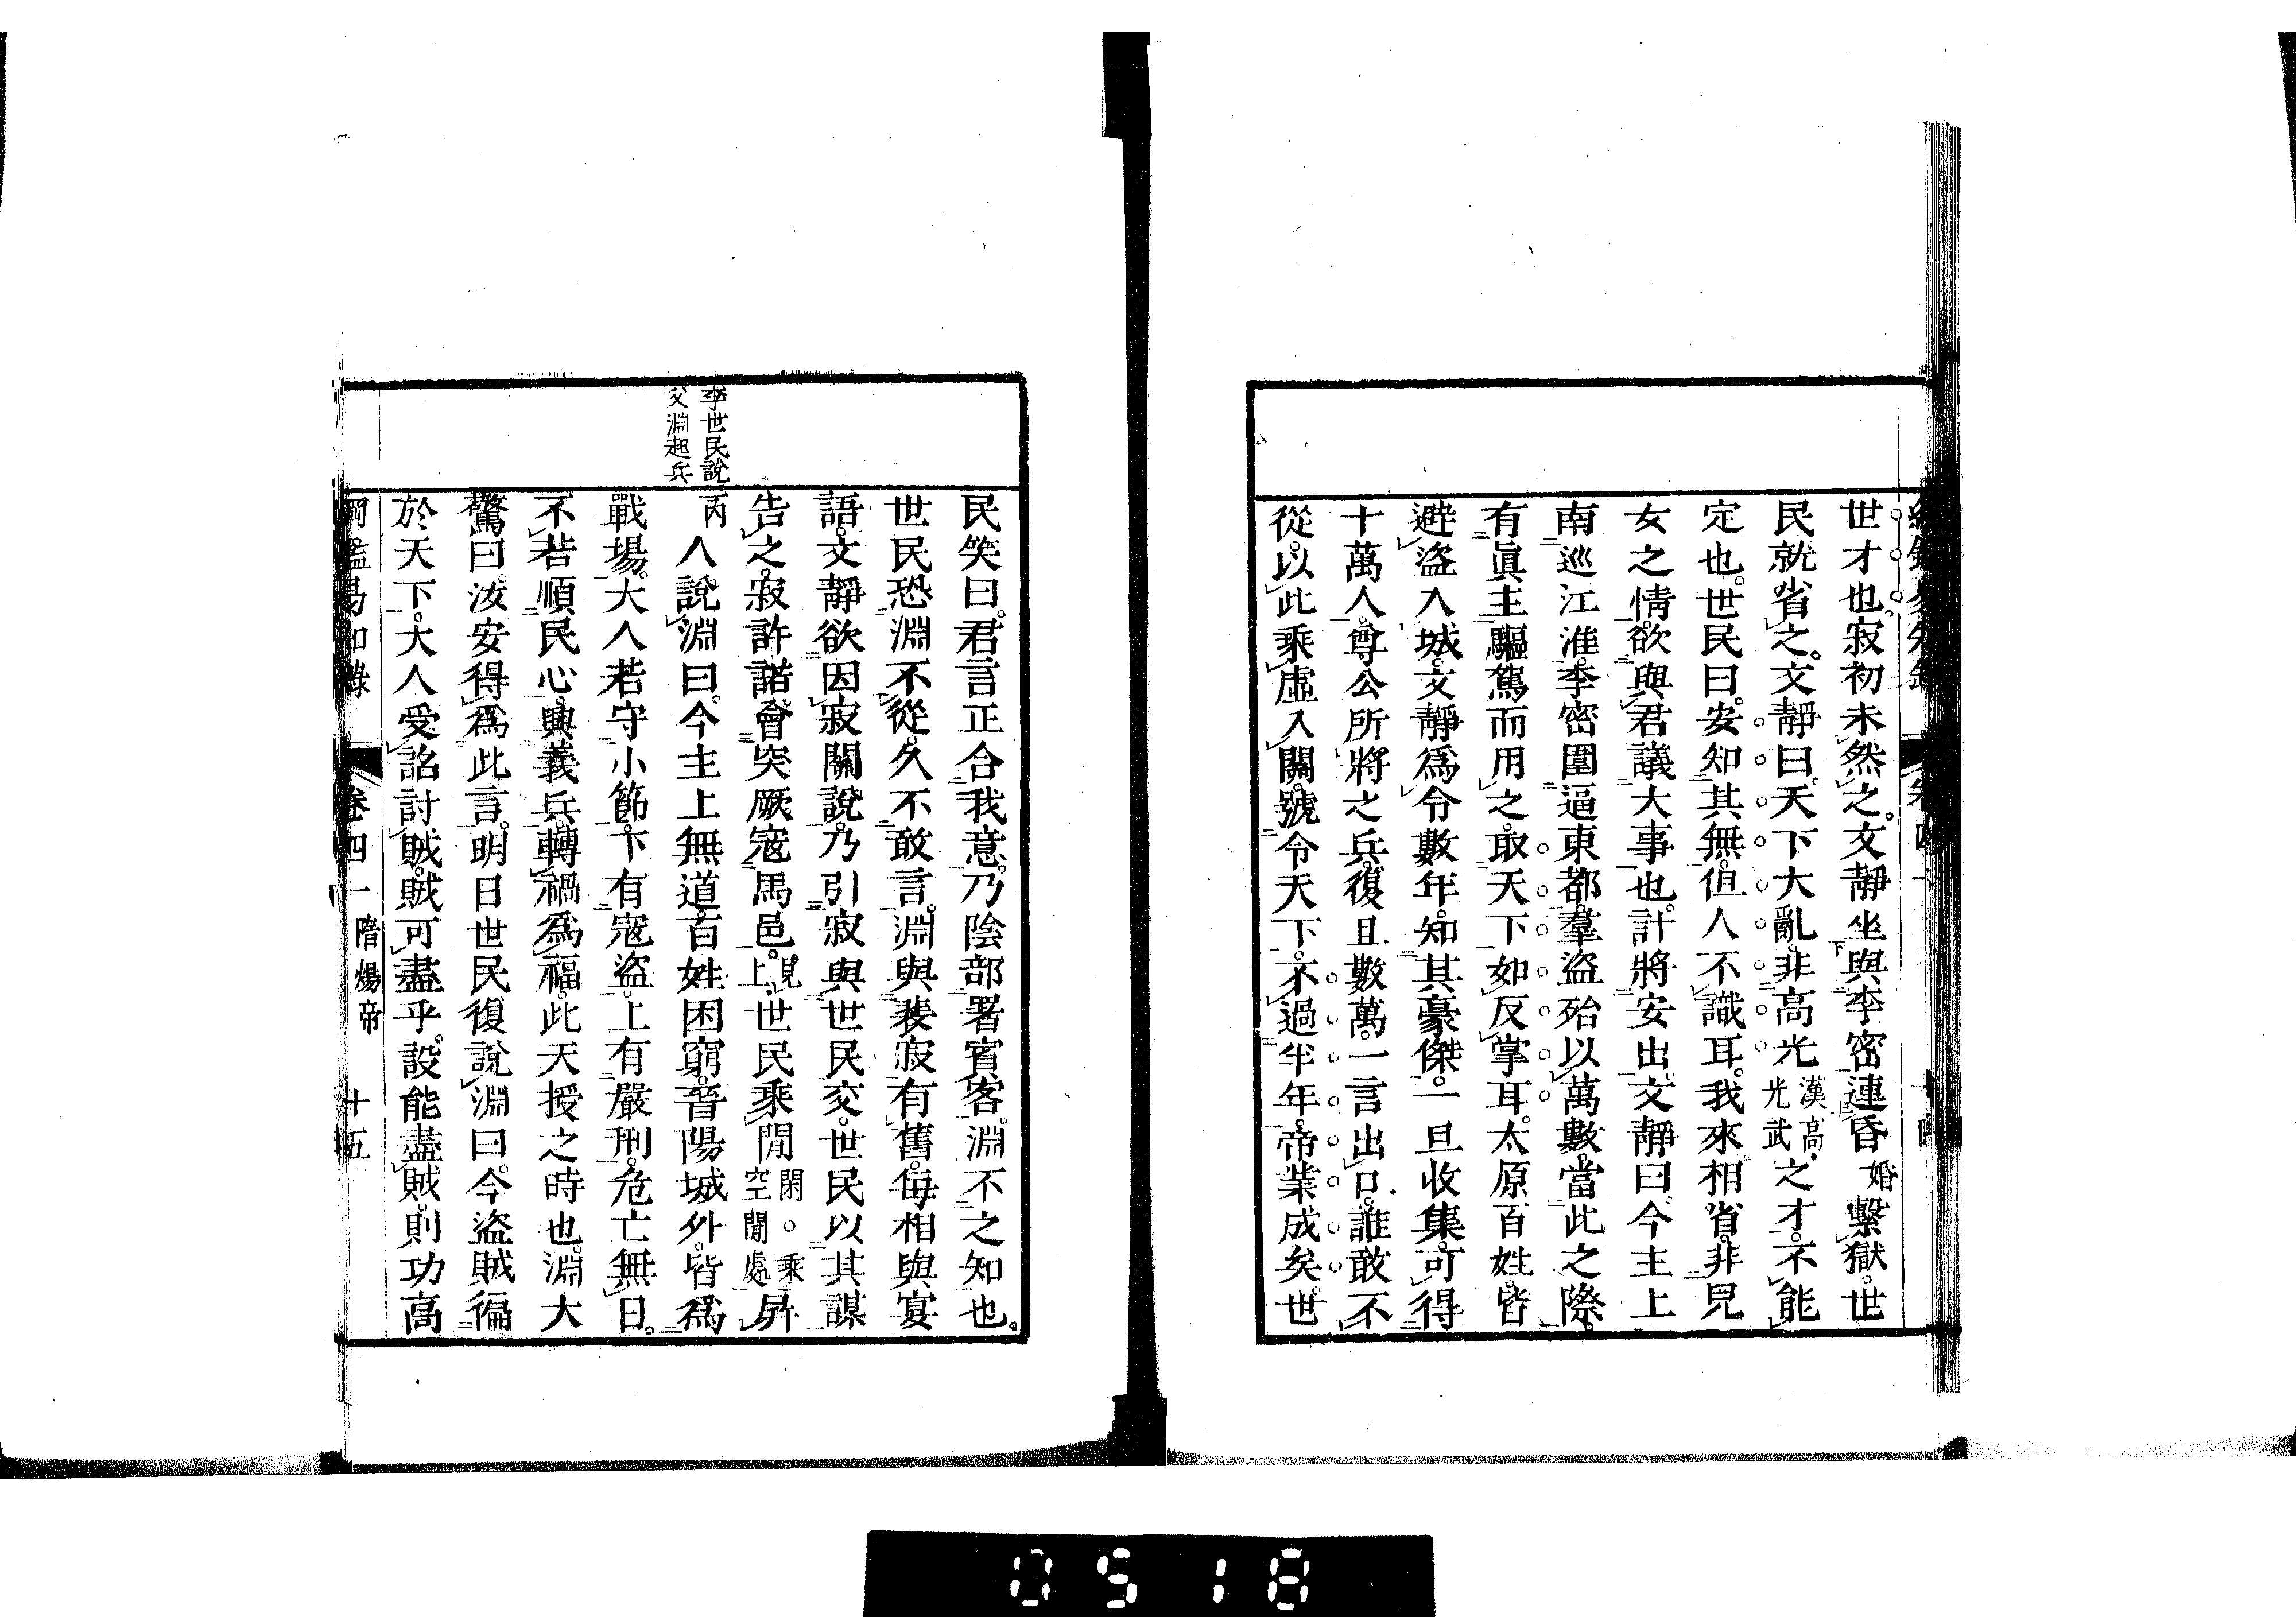 世才也。寂初未然之。文靜坐與李密連昏婚繫獄。世
民就省之。文靜曰。天下大亂。非高光漢高光武之才。不能
定也。世民曰。安知其無。但人不識耳。我來相省。非兒
女之情。欲與君議大事也。計將安出。文靜曰。今主上
南巡江淮。李密圍逼東都。羣盜殆以萬數。當此之際。
有眞主驅駕而用之。取天下如反掌耳。太原百姓。皆
避盜入城。文靜爲令數年。知其豪傑。一旦收集。可得
十萬人。尊公所將之兵。復且數萬。一言出口。誰敢不
從。以此乘虛入關。號令天下。不過半年。帝業成矣。世
民笑曰。君言正合我意。乃陰部署賓客。淵不之知也。
世民恐淵不從。久不敢言。淵與裴寂有舊。每相與宴
語。文靜欲因寂關說。乃引寂與世民交。世民以其謀
告之。寂許諾。會突厥寇馬邑。見上。世民乘閒閑。乘空閒處屛
李世民說父淵起兵
丙人說淵曰。今主上無道。百姓困窮。晉陽城外。皆爲
戰場。大人若守小節。下有寇盜。上有嚴刑。危亡無日。
不若順民心。興義兵。轉禍爲福。此天授之時也。淵大
驚曰。汝安得爲此言。明日世民復說淵曰。今盜賊徧
於天下。大人受詔討賊。賊可盡乎。設能盡賊。則功高
綱鑑易知錄 卷四一 隋煬帝 十五
0518